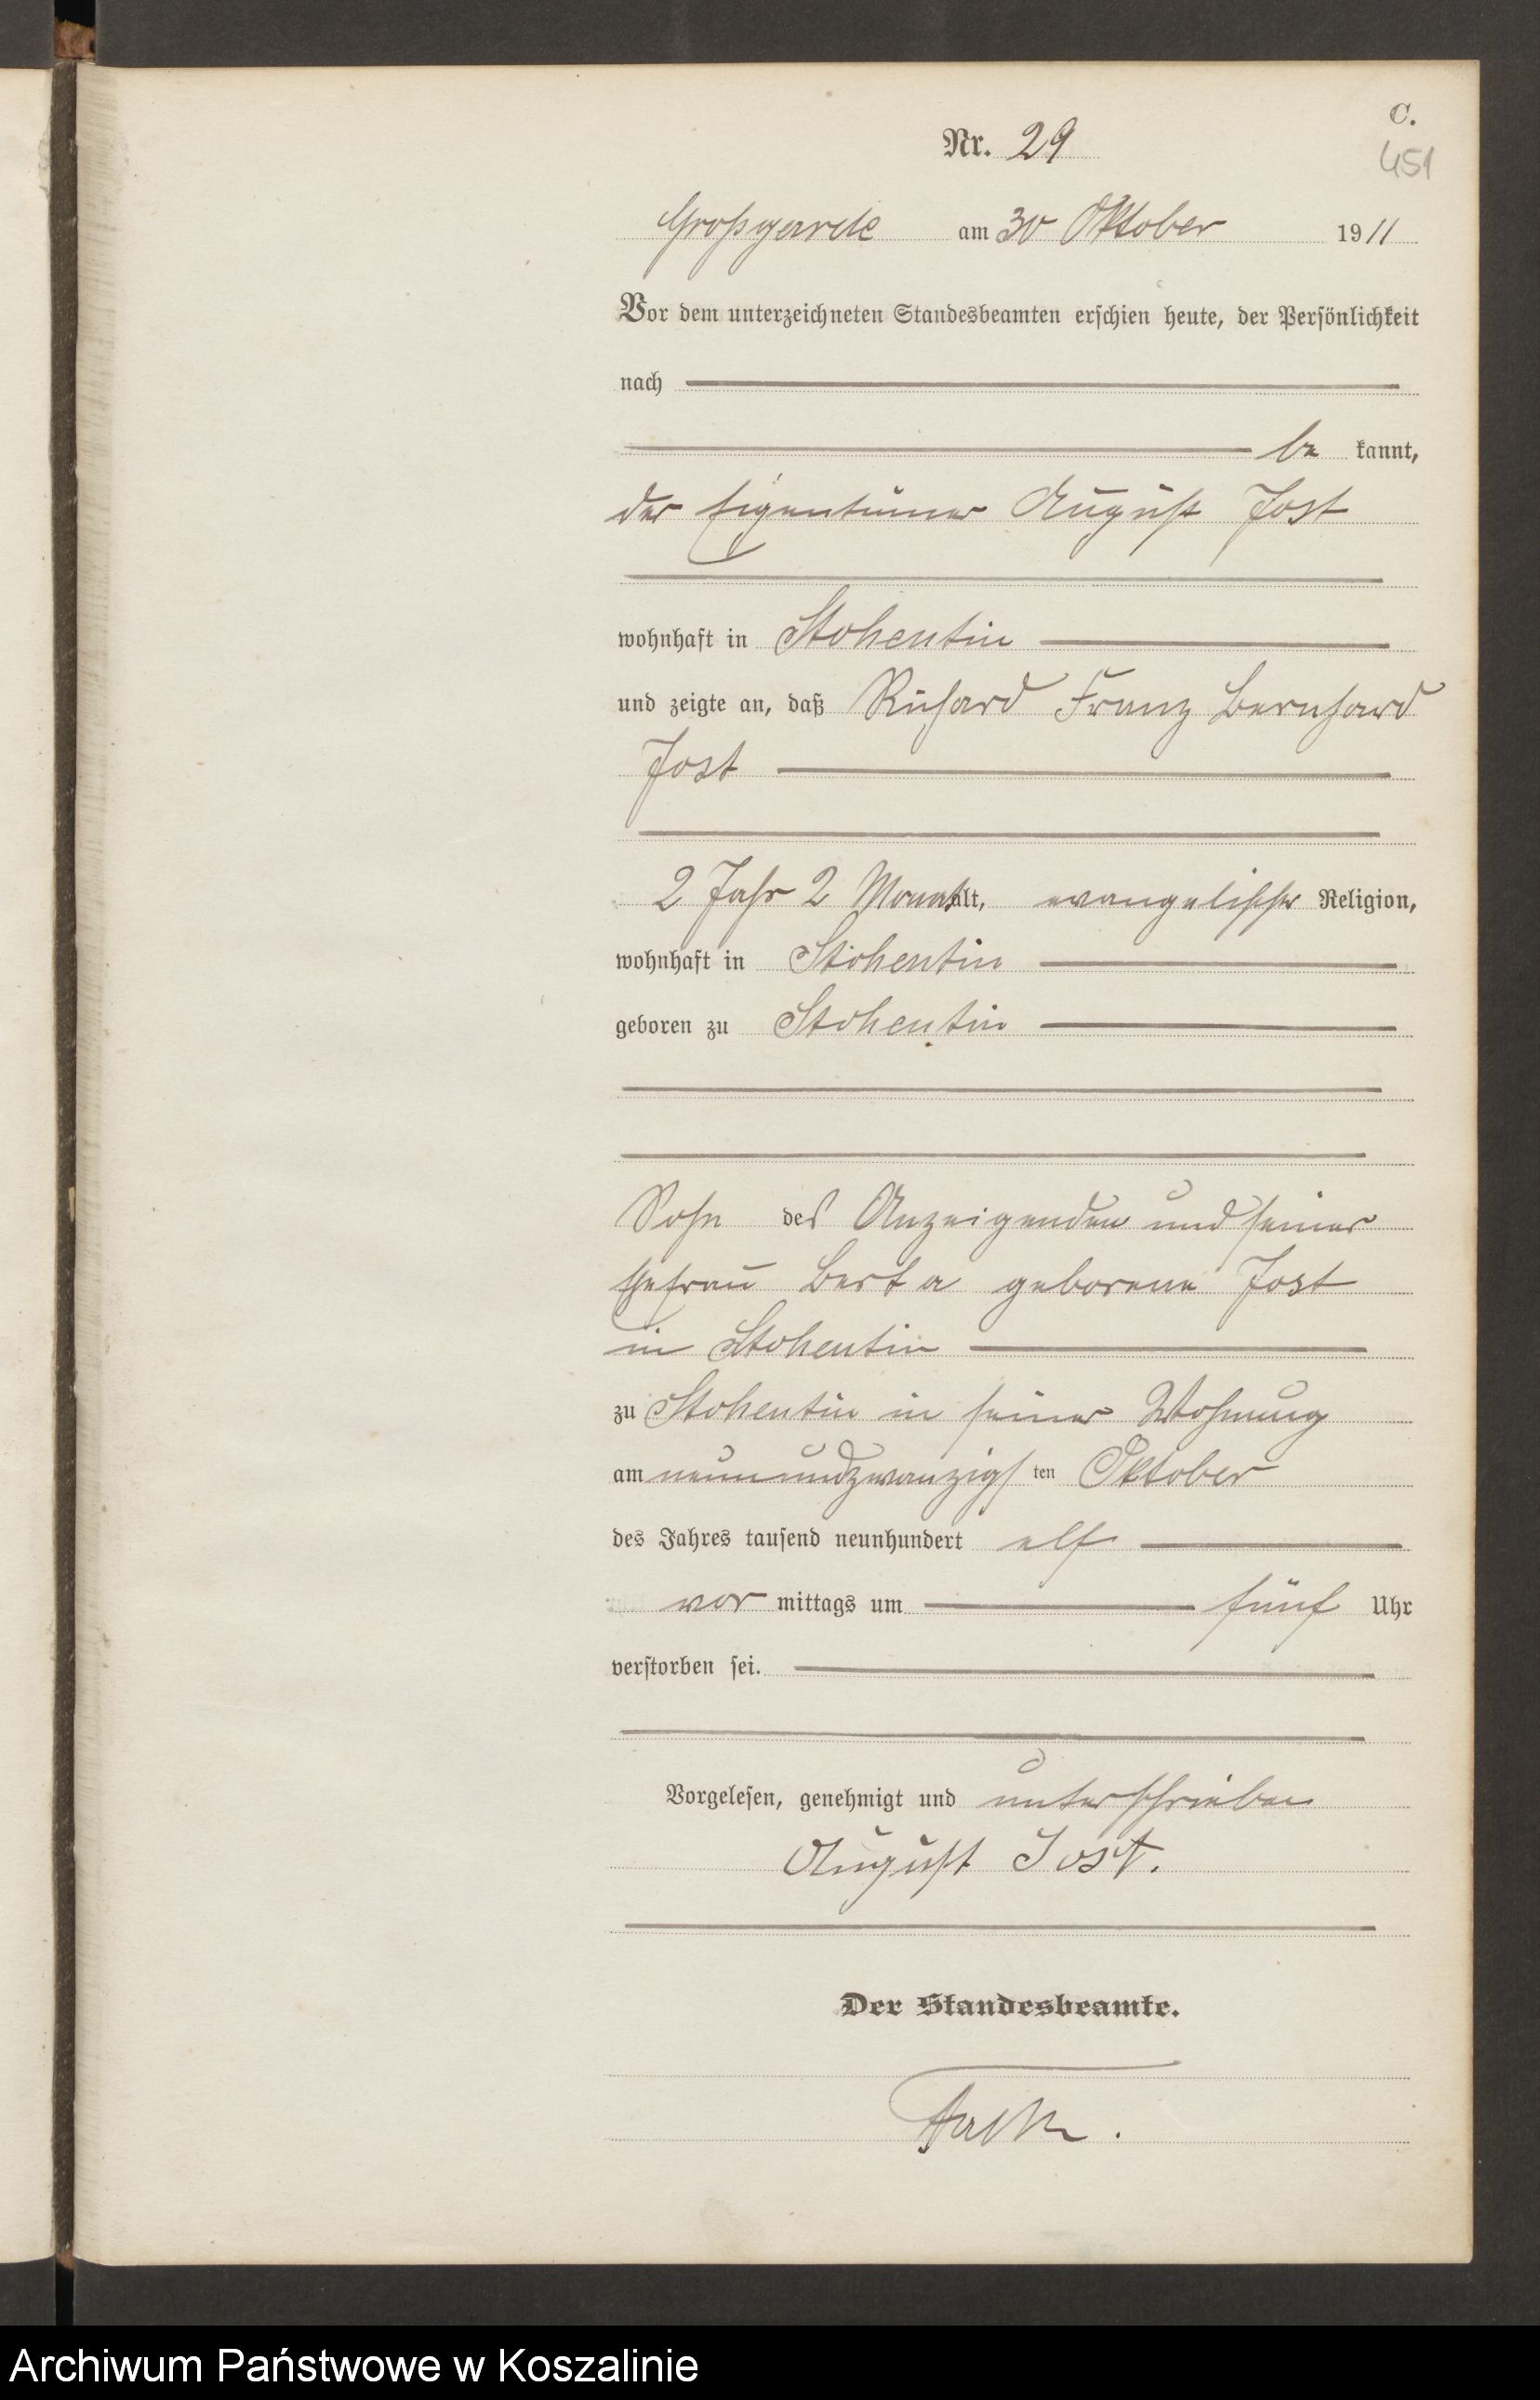 C.
Nr. 29
451
Großgarde am 30 Oktober 1911
Vor dem unterzeichneten Standesbeamten erschien heute, der Persönlichkeit
nach
be kannt,
der Eigentümer August Jost
wohnhaft in Stohentin
und zeigte an, daß Richard Franz Bernhard
Jost
2 Jahr 2 Monat alt, evangelischer Religion,
wohnhaft in Stohentin
geboren zu Stohentin
Sohn des Anzeigenden und seiner
Ehefrau Berta geborene Jost
in Stohentin
zu Stohentin in seiner Wohnung
am neunundzwanzigsten Oktober
des Jahres tausend neunhundert elf
vor mittags um fünf Uhr
verstorben sei.
Vorgelesen, genehmigt und unterschrieben
August Jost.
Der Standesbeamte.
Archiwum Państwowe w Koszalinie